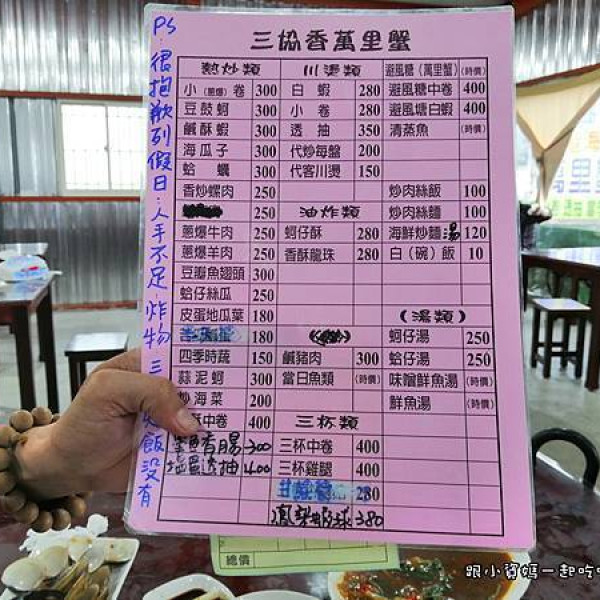 三協香萬里蟹
熱炒類 川燙類 避風糖(萬里蟹)(時價)
小(蔥爆)卷 300 白蝦 280 避風糖中卷 400
豆鼓蚵 300 小卷 280 避風塘白蝦 400
鹹酥蝦 300 透抽 350 清蒸魚 (時價)
海瓜子 300 代炒每盤 200
蛤蠣 300 代客川燙 150
香炒螺肉 250 炒肉絲飯 100
250 油炸類 炒肉絲麵 100
蔥爆牛肉 250 蚵仔酥 280 海鮮炒麵湯 120
蔥爆羊肉 250 香酥龍珠 280 白(碗)飯 10
豆瓣魚翅頭 300
蛤仔絲瓜 250
皮蛋地瓜葉 180 (湯類)
180 蚵仔湯 250
四季時蔬 150 鹹豬肉 300 蛤仔湯 250
蒜泥蚵 300 當日魚類 (時價) 味噌鮮魚湯 (時價)
炒海菜 200 鮮魚湯 (時價)
中卷 400 三杯類
香腸 300 三杯中卷 400
透抽 400 三杯雞腿 400
280
鳳梨蝦球 380
PS.很抱歉列假日:人手不足.炸物三
飯沒有
總價
跟小資媽一起吃